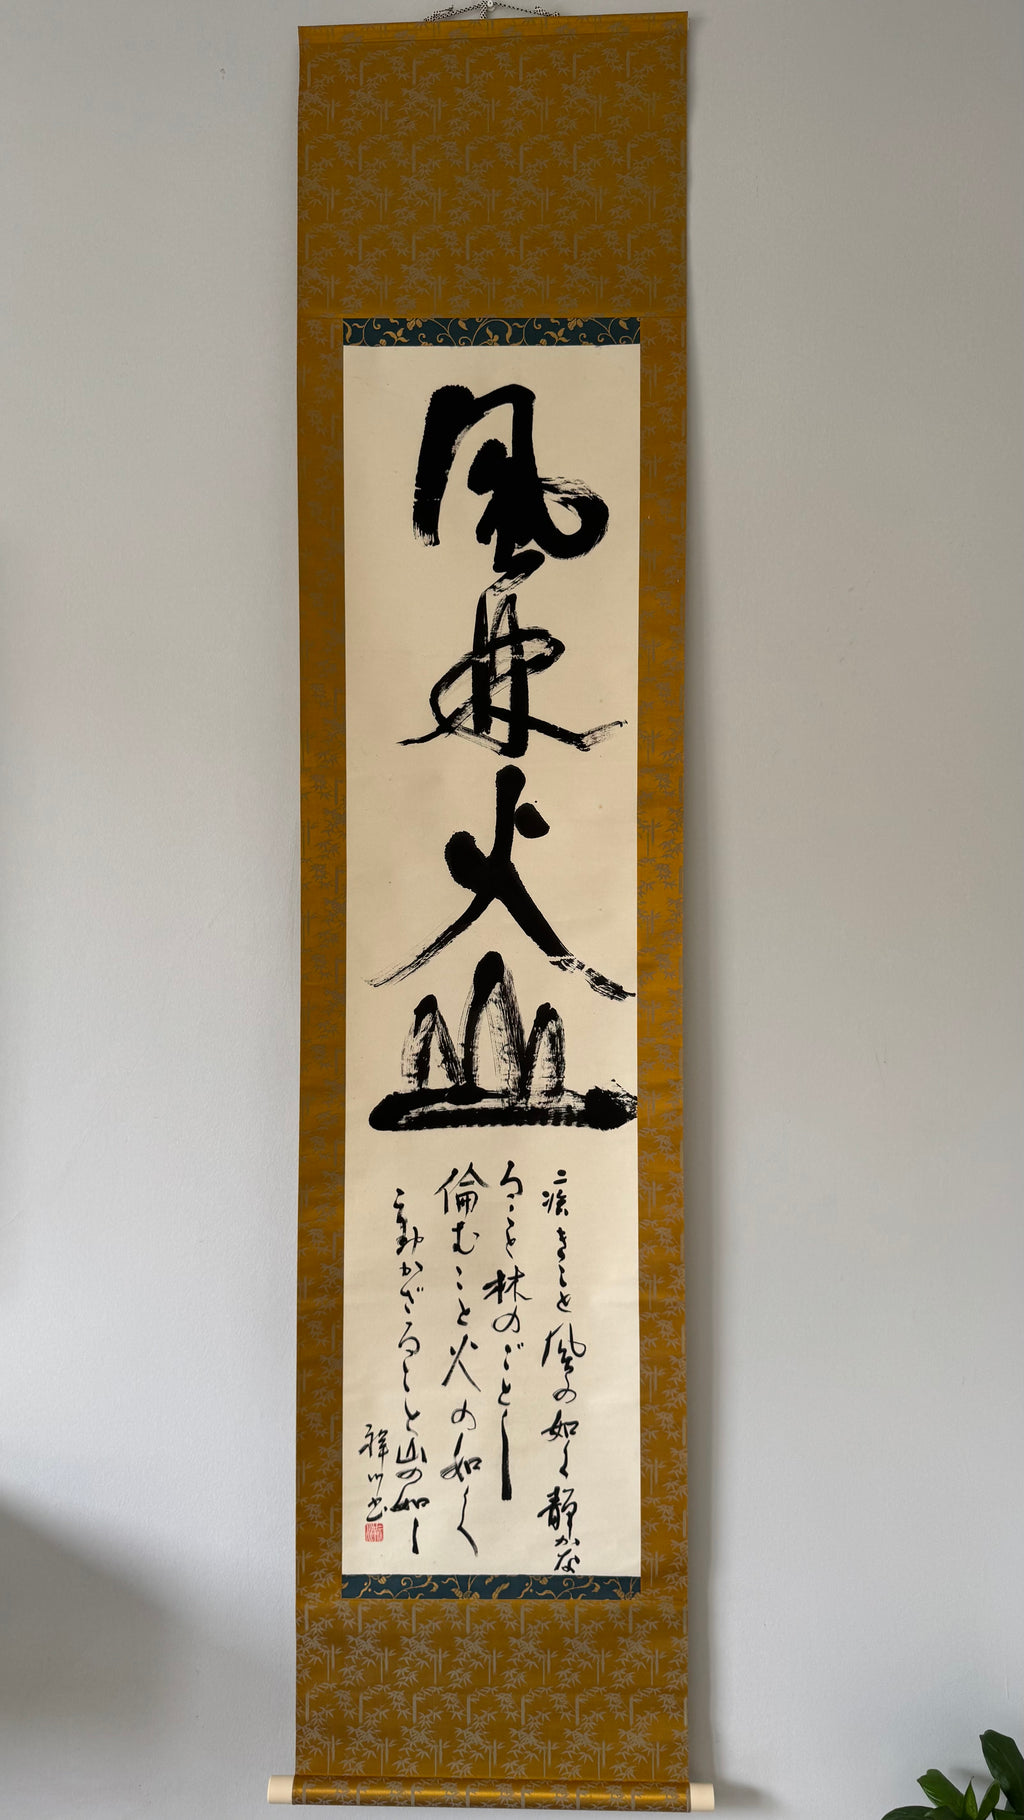 風林火山
疾きこと風の如く静かな
ること林のごとし
倫むこと火の如く
動かざること山の如し
書